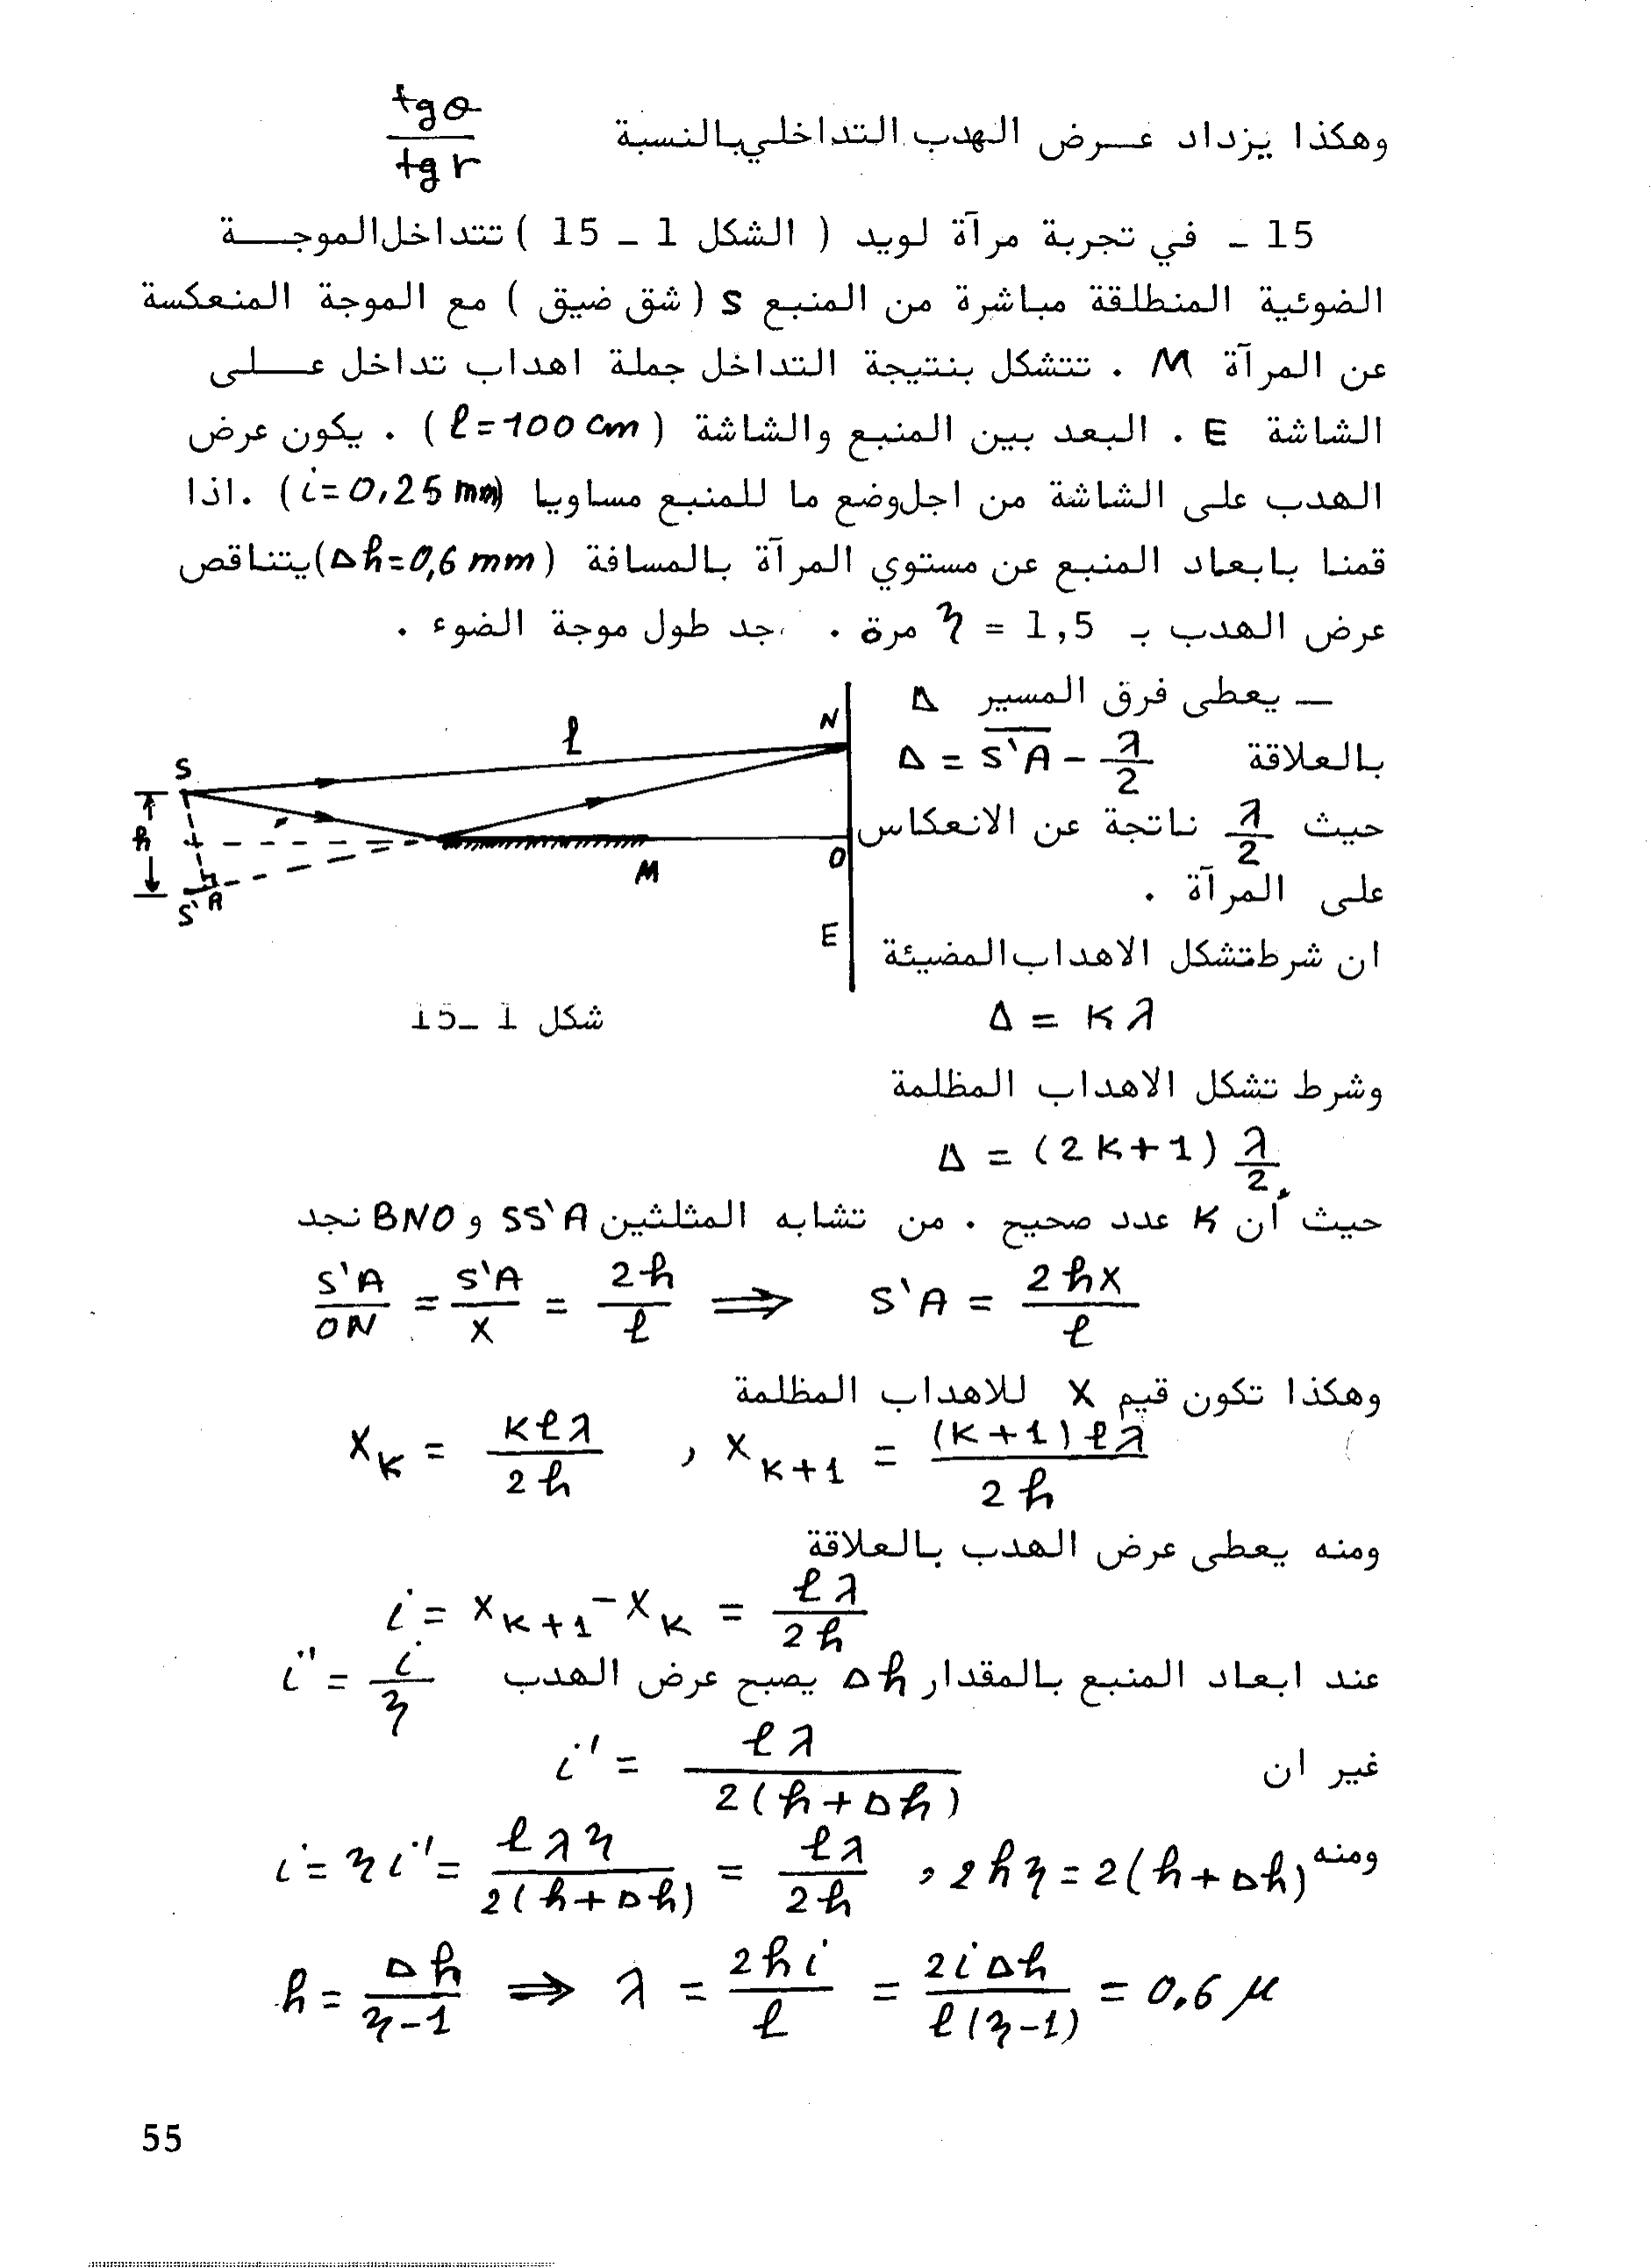 وهكذا يزداد عرض الهدب التداخلي بالنسبة tgθ / tg r
15 ـ في تجربة مرآة لويد ( الشكل 1 ـ 15 ) تتداخل الموجة
الضوئية المنطلقة مباشرة من المنبع S ( شق ضيق ) مع الموجة المنعكسة
عن المرآة M . تتشكل بنتيجة التداخل جملة اهداب تداخل على
الشاشة E . البعد بين المنبع والشاشة ( ℓ=100 cm ) . يكون عرض
الهدب على الشاشة من اجل وضع ما للمنبع مساويا (i=0,25 mm) . اذا
قمنا بابعاد المنبع عن مستوي المرآة بالمسافة (Δh=0,6 mm) يتناقص
عرض الهدب بـ 1,5 = η مرة . جد طول موجة الضوء .
— يعطى فرق المسير Δ
بالعلاقة Δ = S'A - λ/2
حيث λ/2 ناتجة عن الانعكاس
على المرآة .
ان شرط تشكل الاهداب المضيئة
Δ = Kλ
S
ℓ
N
h
S'
A
M
O
E
شكل 1 ـ 15
وشرط تشكل الاهداب المظلمة
Δ = (2K+1) λ/2
حيث أن K عدد صحيح . من تشابه المثلثين SS'A و BNO نجد
S'A/ON = S'A/X = 2h/ℓ ⟹ S'A = 2hX/ℓ
وهكذا تكون قيم X للاهداب المظلمة
X_K = Kℓλ/2h , X_K+1 = (K+1)ℓλ/2h
ومنه يعطى عرض الهدب بالعلاقة
i = X_K+1 - X_K = ℓλ/2h
عند ابعاد المنبع بالمقدار Δh يصبح عرض الهدب i' = i/η
غير ان i' = ℓλ / 2(h+Δh)
ومنه i = ηi' = ℓλη / 2(h+Δh) = ℓλ/2h , 2hη = 2(h+Δh)
h = Δh/(η-1) ⟹ λ = 2hi/ℓ = 2iΔh / ℓ(η-1) = 0.6 μ
55